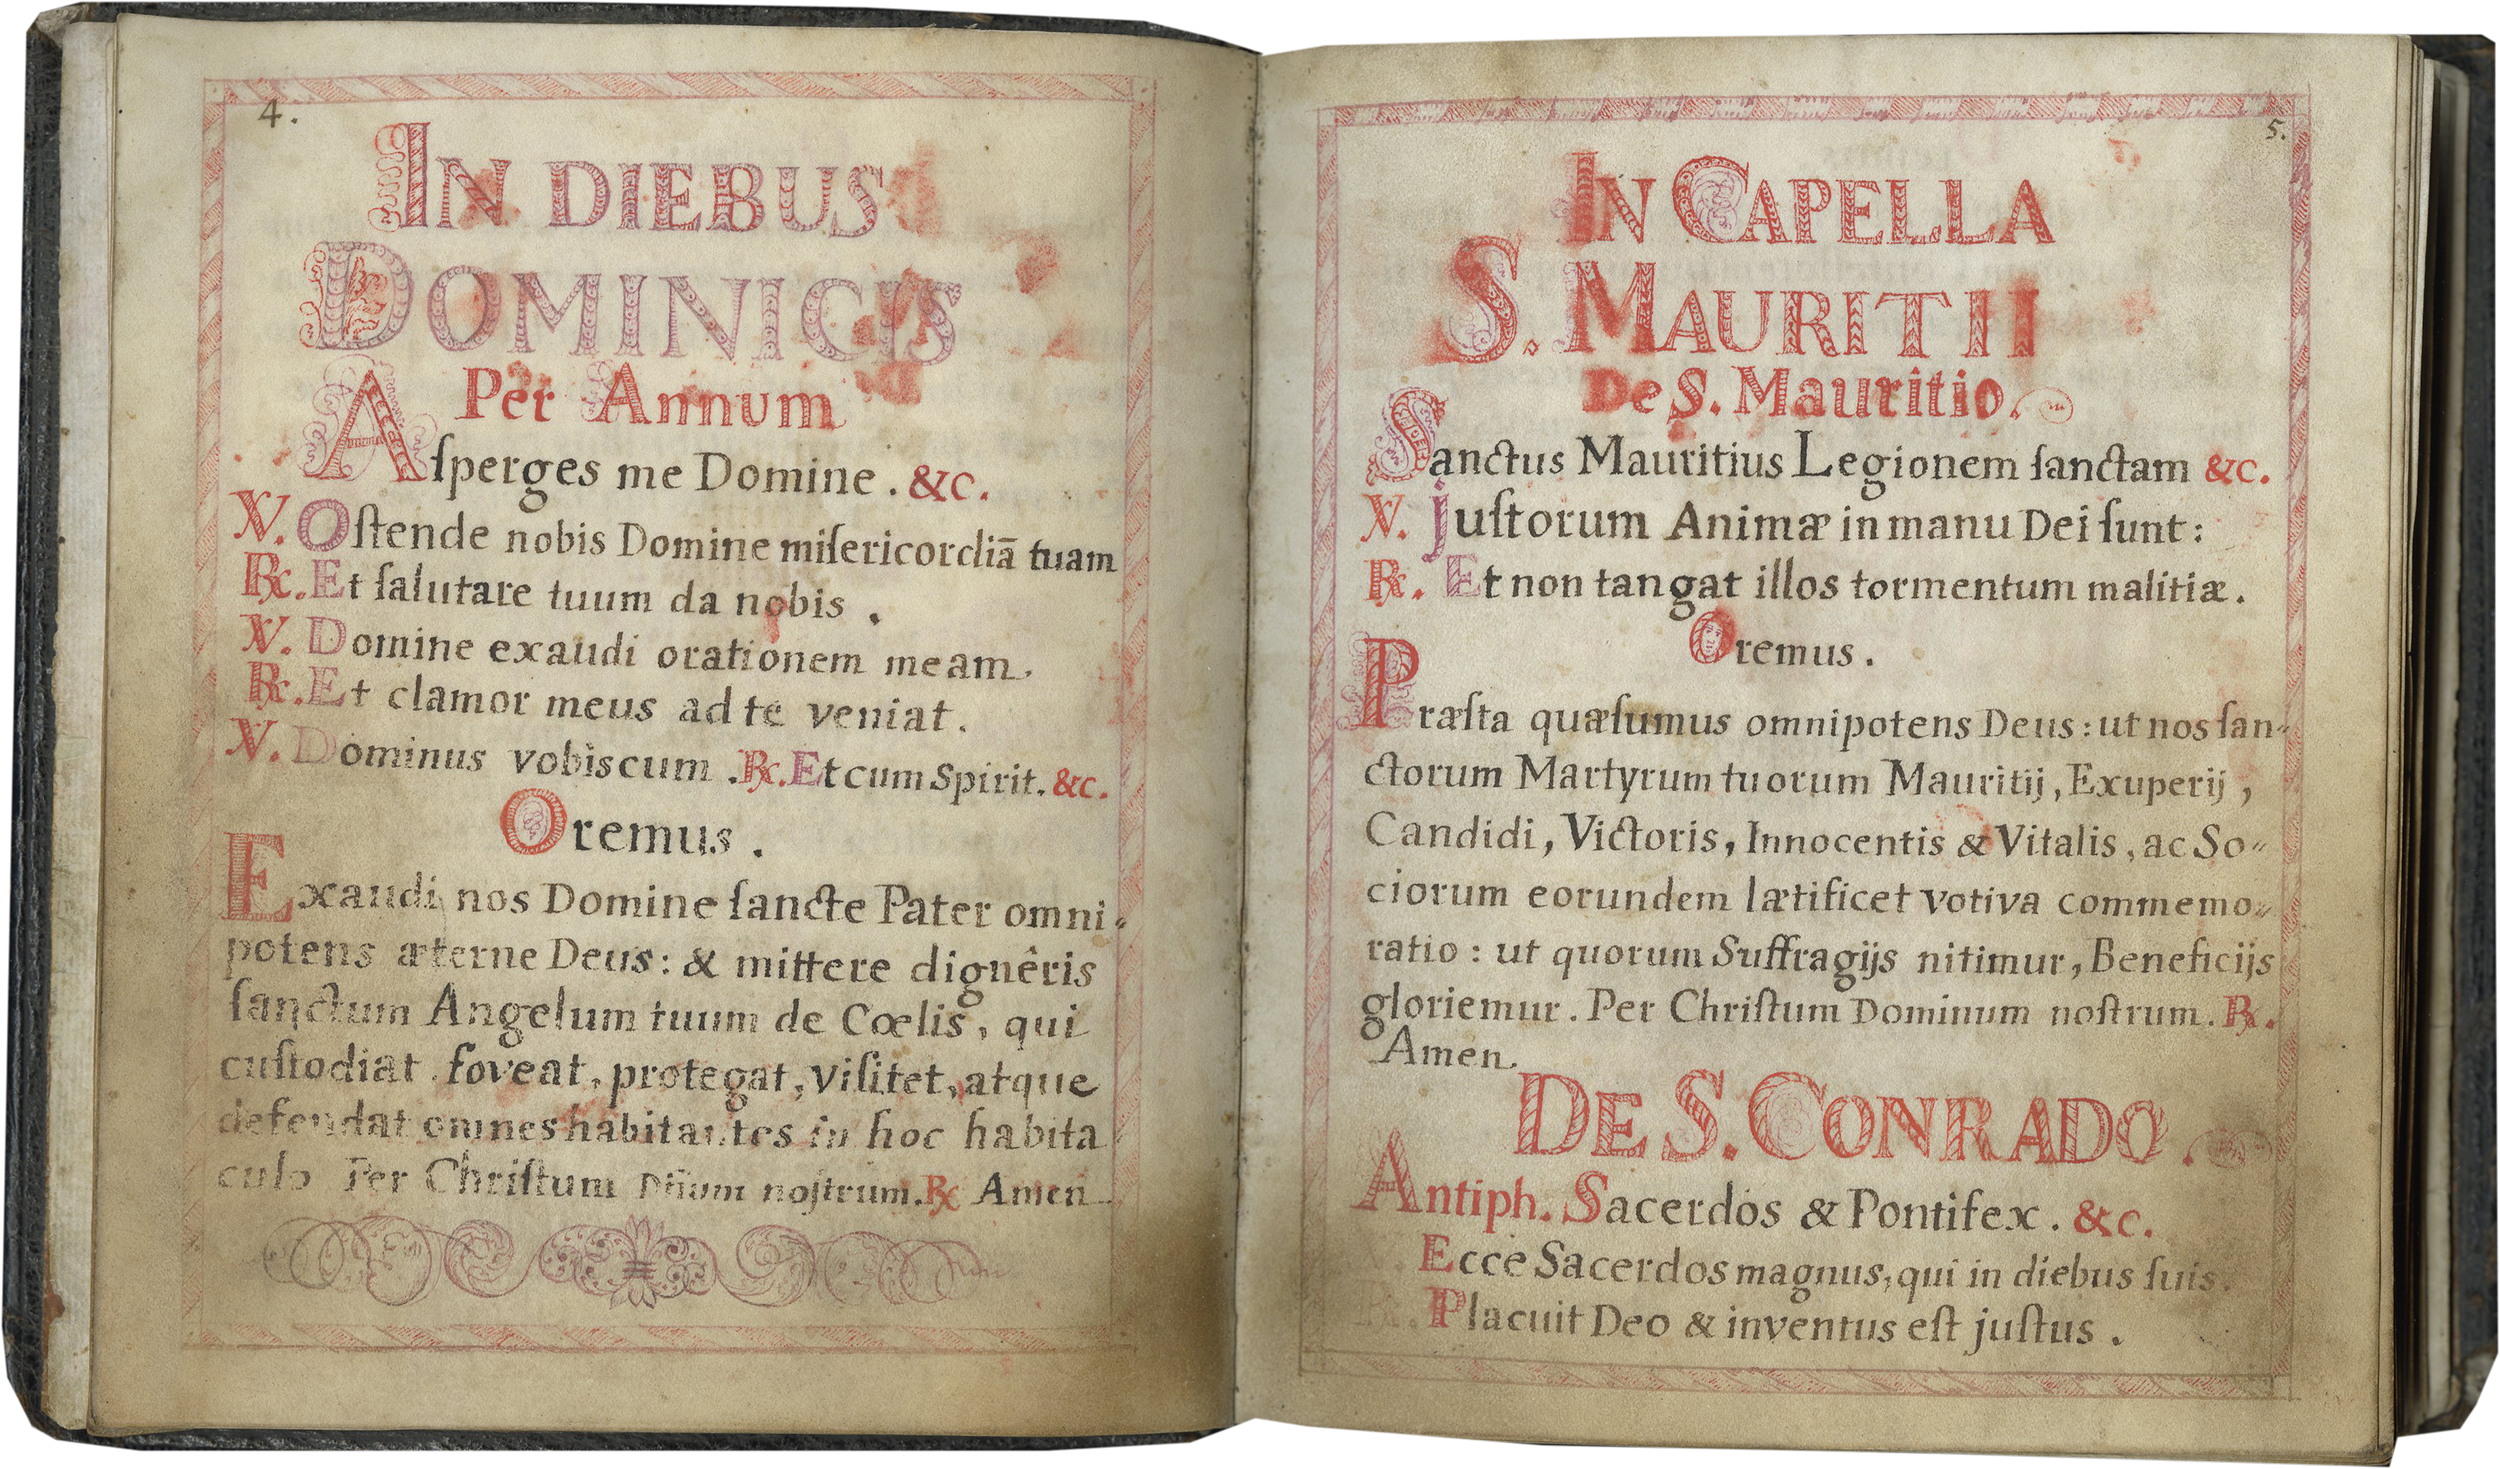 4.
IN DIEBUS
DOMINICIS
Per Annum
Aſperges me Domine. &c.
℣. Oſtende nobis Domine miſericordiā tuam
℞. Et ſalutare tuum da nobis.
℣. Domine exaudi orationem meam.
℞. Et clamor meus ad te veniat.
℣. Dominus vobiscum. ℞. Et cum Spirit. &c.
Oremus.
Exaudi nos Domine ſancte Pater omni-
potens æterne Deus: & mittere dignêris
ſanctum Angelum tuum de Cœlis, qui
cuſtodiat, foveat, protegat, viſitet, atque
defendat omnes habitantes in hoc habita
culo Per Chriſtum Dñum noſtrum. ℞ Amen
5.
IN CAPELLA
S. MAURITII
De S. Mauritio.
Sanctus Mauritius Legionem ſanctam &c.
℣. Juſtorum Animæ in manu Dei ſunt:
℞. Et non tangat illos tormentum malitiæ.
Oremus.
Præſta quæſumus omnipotens Deus: ut nos ſan-
ctorum Martyrum tuorum Mauritij, Exuperij,
Candidi, Victoris, Innocentis & Vitalis, ac So-
ciorum eorundem lætificet votiva commemo-
ratio: ut quorum Suffragijs nitimur, Beneficijs
gloriemur. Per Chriſtum Dominum noſtrum. ℞.
Amen.
DE S. CONRADO.
Antiph. Sacerdos & Pontifex. &c.
Ecce Sacerdos magnus, qui in diebus ſuis.
℞. Placuit Deo & inventus eſt juſtus.